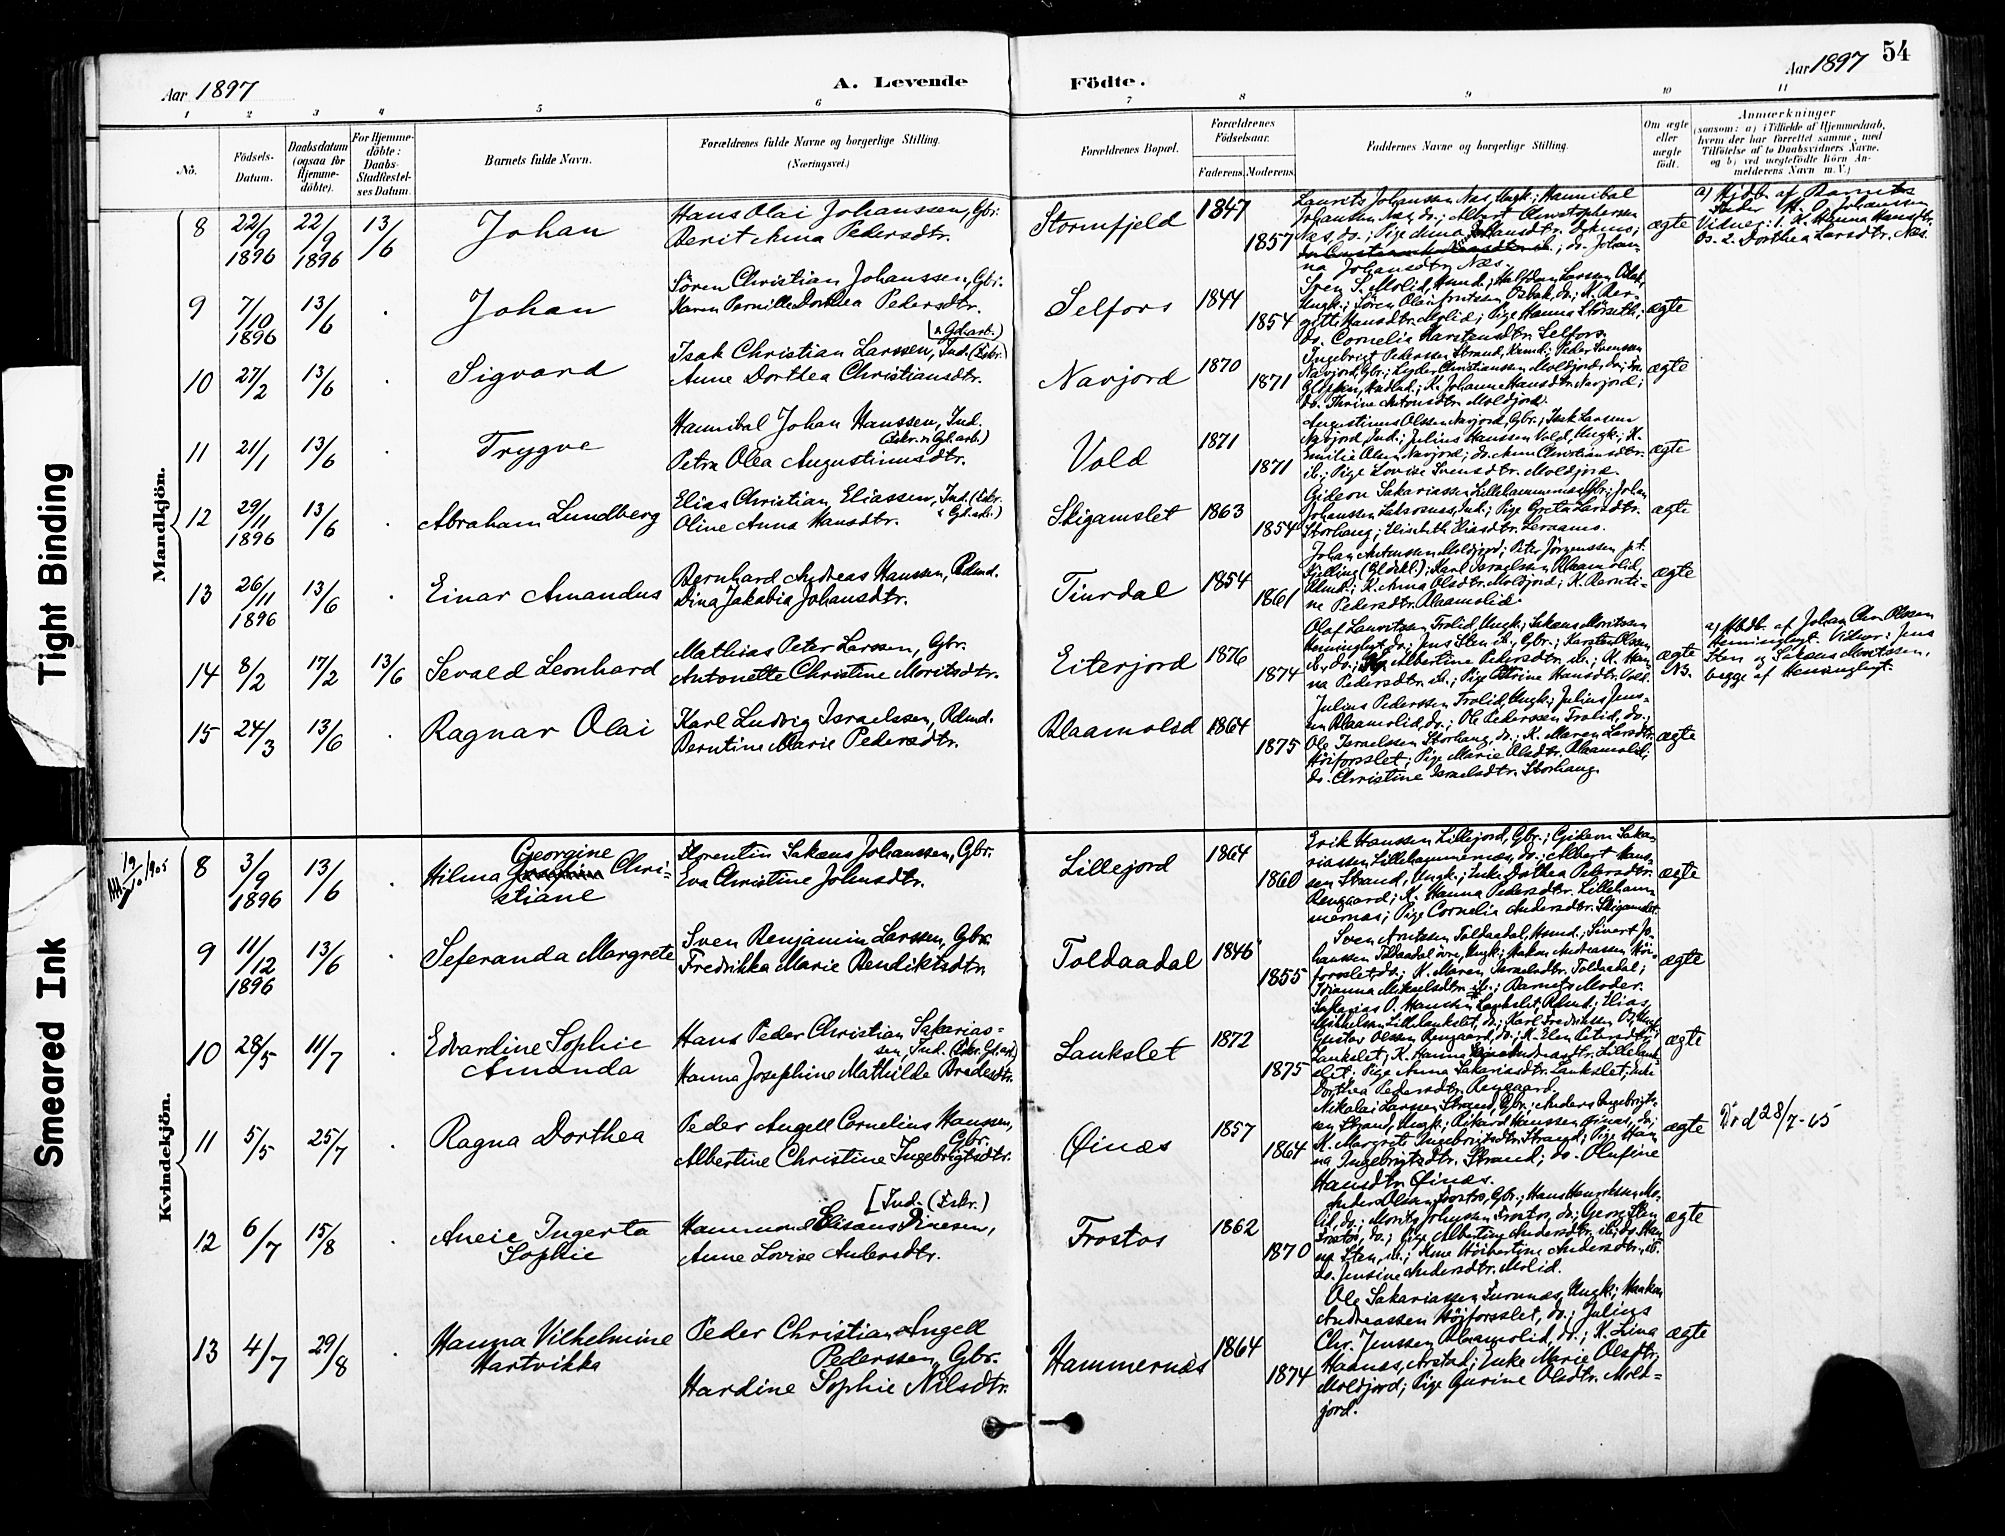 54
Aar 1897
A. Levende
Födte.
Aar 1897
1 2 3 4 5 6 7 8 9 10 11
No.
Födsels-
Datum.
Daabsdatum
(ogsaa for
Hjemme-
döbte).
For Hjemme-
döbte:
Daabs-
Stadfæstel-
ses Datum.
Barnets fulde Navn.
Forældrenes fulde Navne og borgerlige Stilling.
(Næringsvei.)
Forældrenes Bopæl.
Forældrenes
Födselsaar.
Faderens. Moderens.
Faddernes Navne og borgerlige Stilling.
Om ægte
eller
uægte
födt.
Anmærkninger
(saasom: a) i Tilfælde af Hjemmedaab,
hvem der har forrettet samme, med
Tilföielse af to Daabsvidners Navne,
og b) ved uægtefödte Börn An-
melderens Navn m. V.)
Mandkjön.
8 22/9 1896 22/9 1896 13/6 Johan
Hans Olai Johanssen, Gbr.
Berit Anna Pedersdtr.
Stormfjeld 1847 1857
Laurits Johanssen Næs, Ungk.; Hannibal
Johanssen Næs, do.; Albert Christophersen
na Johansdtr. Næs.
ægte
a) Hjdb. af Barnets
Fader H. O. Johanssen
Vidner: 1. K. Hanna Hansdtr.
Os. 2. Dorthea Larsdtr. Næs.
9 7/10 1896 13/6 . Johan
Sören Christian Johanssen, Gbr.
Karen Pernille Dorthea Pedersdtr.
Selfors 1844 1854
Sven S. Molid, Kmd.; Halfdan Larssen
do. Cornelia Karstensdtr. Selfors.
ægte
10 27/2 13/6 . Sigvard
[& Gdarb.)
Isak Christian Larssen, Ind. (Fskr.
Anne Dorthea Christiansdtr.
Navjord 1870 1871
Ingebrigt Pederssen Strand, Kmd.; Peder Svenssen
Navjord, Gbr.; Peder Christianssen Moldjord, do.;
K. Johanna Hansdtr. Navjord;
do. Thrine Antonsdtr. Moldjord.
ægte
11 21/1 13/6 . Trygve
Hannibal Johan Hanssen, Ind.
(Fskr. & Gdarb.)
Petra Olea Augustinusdtr.
Vold 1871 1871
Augustinus Olssen Navjord, Gbr.; Isak Larssen
Navjord, Ind.; Julius Hanssen Vold, Ungk.; K.
Emilie Olsen Navjord; do. Anne Christiansdtr.
ib.; Pige Lovise Svensdtr. Moldjord.
ægte
12 29/11 1896 13/6 . Abraham Lundberg
Elias Christian Eliassen, Ind. (Fskr.
& Gdarb.)
Oline Anna Hansdtr.
Skigamslet 1863 1854
Gideon Sakariassen Lillehammernæs, Gbr.; Johan
Storhaug; Elisabeth Eliasdtr.
ægte
13 26/11 1896 13/6 . Einar Amandus
Bernhard Andreas Hanssen, Rdmd.
Dina Jakobia Johansdtr.
Tinrdal 1854 1861
Johan Antonssen Moldjord; Peter Jörgenssen
Karl Israelssen Blaamolid,
K. Anna Olsdtr. Moldjord; K. Bernti-
ne Pedersdtr. Blaamolid.
ægte
14 8/2 17/2 13/6 Sevald Leonhard
Mathias Peter Larssen, Gbr.
Antonette Christine Moritsdtr.
Eiterjord 1876 1874
Olaf Lauritssen Trolid, Ungk.; Sakæus Moritssen
Hemingligt, do.; Jens Sten ib., Gbr.; Karsten Olssen
Albertine Pedersdtr. ib.; K. Han-
na Pedersdtr. ib.; Pige Hansdtr. Vold.
ægte
NB.
a) Hbdb. af Johan Chr. Olssen
Hemingligt. Vidner: Jens
Sten og Sakæus Moritssen,
begge af Hemingligt.
15 24/3 13/6 . Ragnar Olai
Karl Ludvig Israelssen, Rdmd.
Berntine Marie Pedersdtr.
Blaamolid 1864 1875
Julius Pederssen Trolid, Ungk.; Julius Jens-
sen Blaamolid, do.; Ole Pederssen Trolid, do.;
Ole Israelssen Storhaug, do.; K. Maren Larsdtr.
Höiforsslet; Pige Marie Olsdtr. Blaamolid;
do. Christine Israelsdtr. Storhaug.
ægte
Kvindekjön.
8 3/9 1896 13/6 . Georgine
Hilma Chri-
stiane
Florentin Sakæus Johanssen, Gbr.
Eva Christine Johnsdtr.
Lillejord 1864 1860
Erik Hanssen Lillejord, Gbr.; Gideon Saka-
riassen Lillehammernæs, do.; Albert Hans-
sen Strand, Ungk.; Enke Dorthea Pedersdtr.
Rengaard; K. Hanna Pedersdtr. Lilleham-
mernæs; Pige Cornelia Andersdtr. Skigamslet.
ægte
9 11/12 1896 13/6 . Seferanda Margrete
Sven Benjamin Larssen, Gbr.
Fredrikka Marie Bendiktsdtr.
Toldaadal 1846 1855
Sven Arntssen Toldaadal, Kmd.; Sivert Jo-
hanssen Toldaadal övre, Ungk.; Hakon Andreassen Höi-
forsslet, do.; K. Maren Israelsdtr. Toldaadal;
Johanna Mikaelsdtr. ib.; Barnets Moder.
ægte
10 28/5 11/7 . Edvardine Sophie
Amanda
Hans Peder Christian Sakarias-
sen, Ind. (Fskr. Gdarb.)
Hanna Josephine Mathilde Bradesdtr.
Lankslet 1872 1875
Sakarias O. Hanssen Lankslet, Rdmd.; Elias
Mikkelsen Lillelankslet, do.; Karl Fredrikssen
Gustav Olssen Rengaard, do.; K. Elen Petersdtr.
Lankslet; K. Hanna Andreasdtr. Lillelank-
slet; Pige Anna Sakariasdtr. Lankslet; Enke
Dorthea Pedersdtr. Rengaard.
ægte
11 5/5 25/7 . Ragna Dorthea
Peder Angell Cornelius Hanssen,
Gbr.
Albertine Christine Ingebrigtsdtr.
Øinæs 1857 1864
Nikolai Larssen Strand, Gbr.; Anders Ingebrigts-
sen Strand, Ungk.; Rikard Hanssen Øinæs, do.;
K. Margrete Ingebrigtsdtr. Strand; Pige Han-
na Ingebrigtsdtr. Strand; do. Olufine
Hansdtr. Øinæs.
ægte
Död 28/7-65
12 6/7 15/8 . Aneie Ingerta
Sophie
[Ind. (Fskr.)
Anne Lovise Andersdtr.
Frostos 1862 1870
Anders Olssen Frostos, Gbr.; Hans Henrikssen Mo-
lid, do.; Morits Johnssen Frostos, do.; Georg Sten
Frostos, do.; Pige Albertine Andersdtr. ib.; do. Han-
na Sten, ib.; Andersdtr. ib.
do. Jensine Andersdtr. Molid.
ægte
13 4/7 29/8 . Hanna Vilhelmine
Hartvikka
Peder Christian Angell
Pederssen, Gbr.
Hardine Sophie Nilsdtr.
Hammernæs 1864 1874
Ole Sakariassen Furunæs, Ungk.; Haakon
Andreassen Höjforsslet, do.; Julius
Chr. Jenssen Blaamolid, do.; K. Lina
Haanæs, Arstad; Enke Marie Olsdtr.
Moldjord; Pige Gurine Olsdtr. Mold-
jord.
ægte
Tight Binding
Smeared Ink